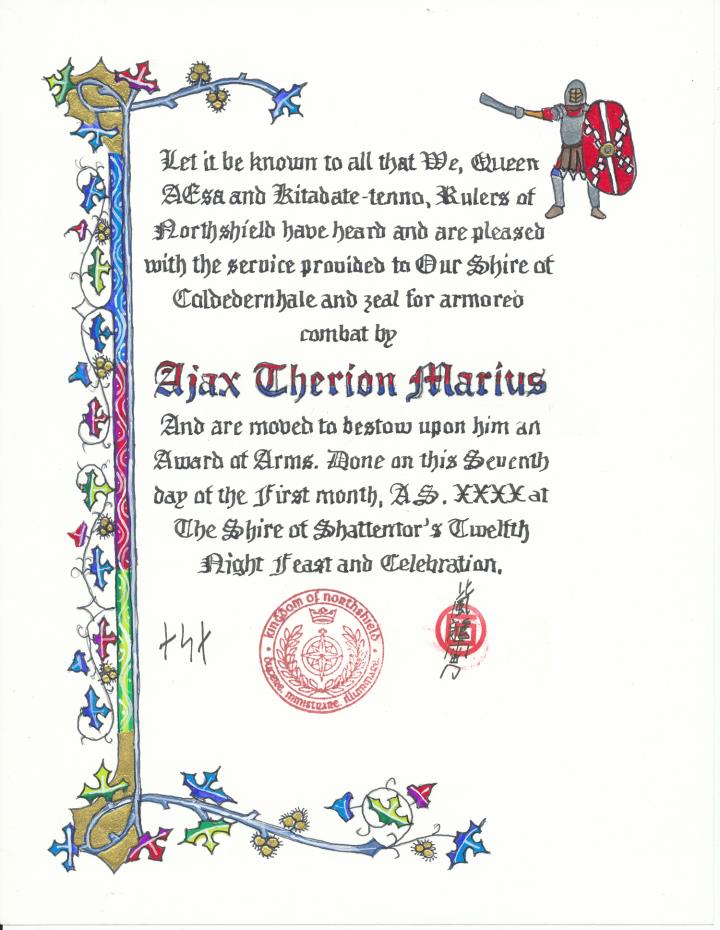 Let it be known to all that We, Queen
AEsa and Kitadate-tenno, Rulers of
Northshield have heard and are pleased
with the service provided to Our Shire of
Coldedernhale and zeal for armored
combat by
Ajax Therion Marius
And are moved to bestow upon him an
Award of Arms. Done on this Seventh
day of the First month, A.S. XXXX at
The Shire of Shattentor's Twelfth
Night Feast and Celebration.
kingdom of northshield
ministrare illuminare